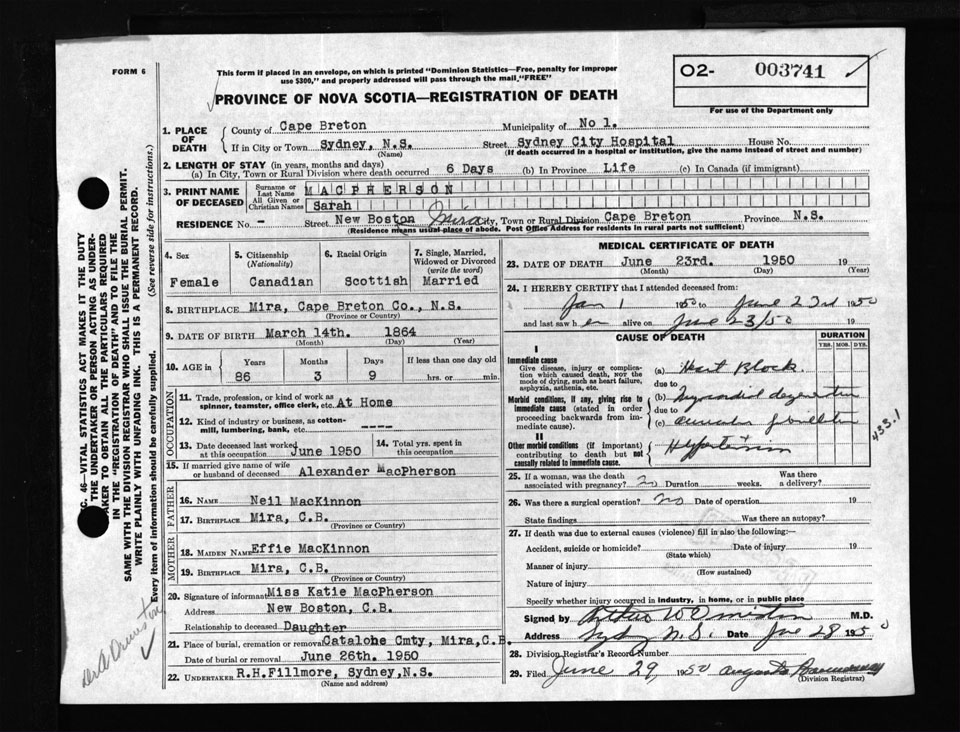 FORM 6
This form if placed in an envelope, on which is printed "Dominion Statistics—Free, penalty for improper
use $300," and properly addressed will pass through the mail, "FREE"
O2- 003741
For use of the Department only
PROVINCE OF NOVA SCOTIA—REGISTRATION OF DEATH
1. PLACE OF DEATH
County of Cape Breton Municipality of No 1.
If in City or Town Sydney, N.S. Street Sydney City Hospital House No.
(Name) (If death occurred in a hospital or institution, give the name instead of street and number)
2. LENGTH OF STAY (in years, months and days)
(a) In City, Town or Rural Division where death occurred 6 Days (b) In Province Life (c) In Canada (if immigrant)
3. PRINT NAME OF DECEASED
Surname or Last Name MACPHERSON
All Given or Christian Names Sarah
RESIDENCE No. - Street New Boston Mira City, Town or Rural Division Cape Breton Province N.S.
(Residence means usual place of abode. Post Office Address for residents in rural parts not sufficient)
4. Sex 5. Citizenship (Nationality) 6. Racial Origin 7. Single, Married, Widowed or Divorced (write the word)
Female Canadian Scottish Married
8. BIRTHPLACE Mira, Cape Breton Co., N.S.
(Province or Country)
9. DATE OF BIRTH March 14th. 1864
(Month) (Day) (Year)
10. AGE in Years Months Days If less than one day old
86 3 9 hrs. or min.
OCCUPATION
11. Trade, profession, or kind of work as
spinner, teamster, office clerk, etc. At Home
12. Kind of industry or business, as cotton-
mill, lumbering, bank, etc. ----
13. Date deceased last worked at this occupation June 1950 14. Total yrs. spent in this occupation
15. If married give name of wife or husband of deceased Alexander MacPherson
FATHER
16. NAME Neil MacKinnon
17. BIRTHPLACE Mira, C.B.
(Province or Country)
MOTHER
18. MAIDEN NAME Effie MacKinnon
19. BIRTHPLACE Mira, C.B.
(Province or Country)
20. Signature of informant Miss Katie MacPherson
Address New Boston, C.B.
Relationship to deceased Daughter
21. Place of burial, cremation or removal Catalohe Cmty, Mira, C.B.
Date of burial or removal June 26th. 1950
22. UNDERTAKER R.H.Fillmore, Sydney, N.S.
(Name and address)
MEDICAL CERTIFICATE OF DEATH
23. DATE OF DEATH June 23rd. 1950 19
(Month) (Day) (Year)
24. I HEREBY CERTIFY that I attended deceased from:
Jan 1 1950 to June 23rd 1950
and last saw h er alive on June 23/50 19
CAUSE OF DEATH DURATION
YRS. MOS. DYS.
I
Immediate cause
Give disease, injury or complica-
tion which caused death, not the
mode of dying, such as heart failure,
asphyxia, asthenia, etc.
(a) Hart Block
due to
Morbid conditions, if any, giving rise to
immediate cause (stated in order
proceeding backwards from im-
mediate cause).
(b) Myocardial degeneration
due to
(c) auricular fibrillation
II
Other morbid conditions (if important)
contributing to death but not
causally related to immediate cause.
Hypertension
433.1
25. If a woman, was the death associated with pregnancy? no Duration weeks. Was there a delivery?
26. Was there a surgical operation? no Date of operation 19
State findings Was there an autopsy?
27. If death was due to external causes (violence) fill in also the following:
Accident, suicide or homicide? Date of injury 19
(State which)
Manner of injury
(How sustained)
Nature of injury
Specify whether injury occurred in industry, in home, or in public place
Signed by Arthur W Ormiston M.D.
Address Sydney N.S. Date June 28 1950
28. Division Registrar's Record Number
29. Filed June 29 1950
(Division Registrar)
C. 46—VITAL STATISTICS ACT MAKES IT THE DUTY
THE UNDERTAKER OR PERSON ACTING AS UNDER-
TAKER TO OBTAIN ALL THE PARTICULARS REQUIRED
IN THE "REGISTRATION OF DEATH" AND TO FILE THE
SAME WITH THE DIVISION REGISTRAR WHO SHALL ISSUE THE BURIAL PERMIT.
WRITE PLAINLY WITH UNFADING INK. THIS IS A PERMANENT RECORD.
Every item of information should be carefully supplied. (See reverse side for instructions.)
Dr A Ormiston